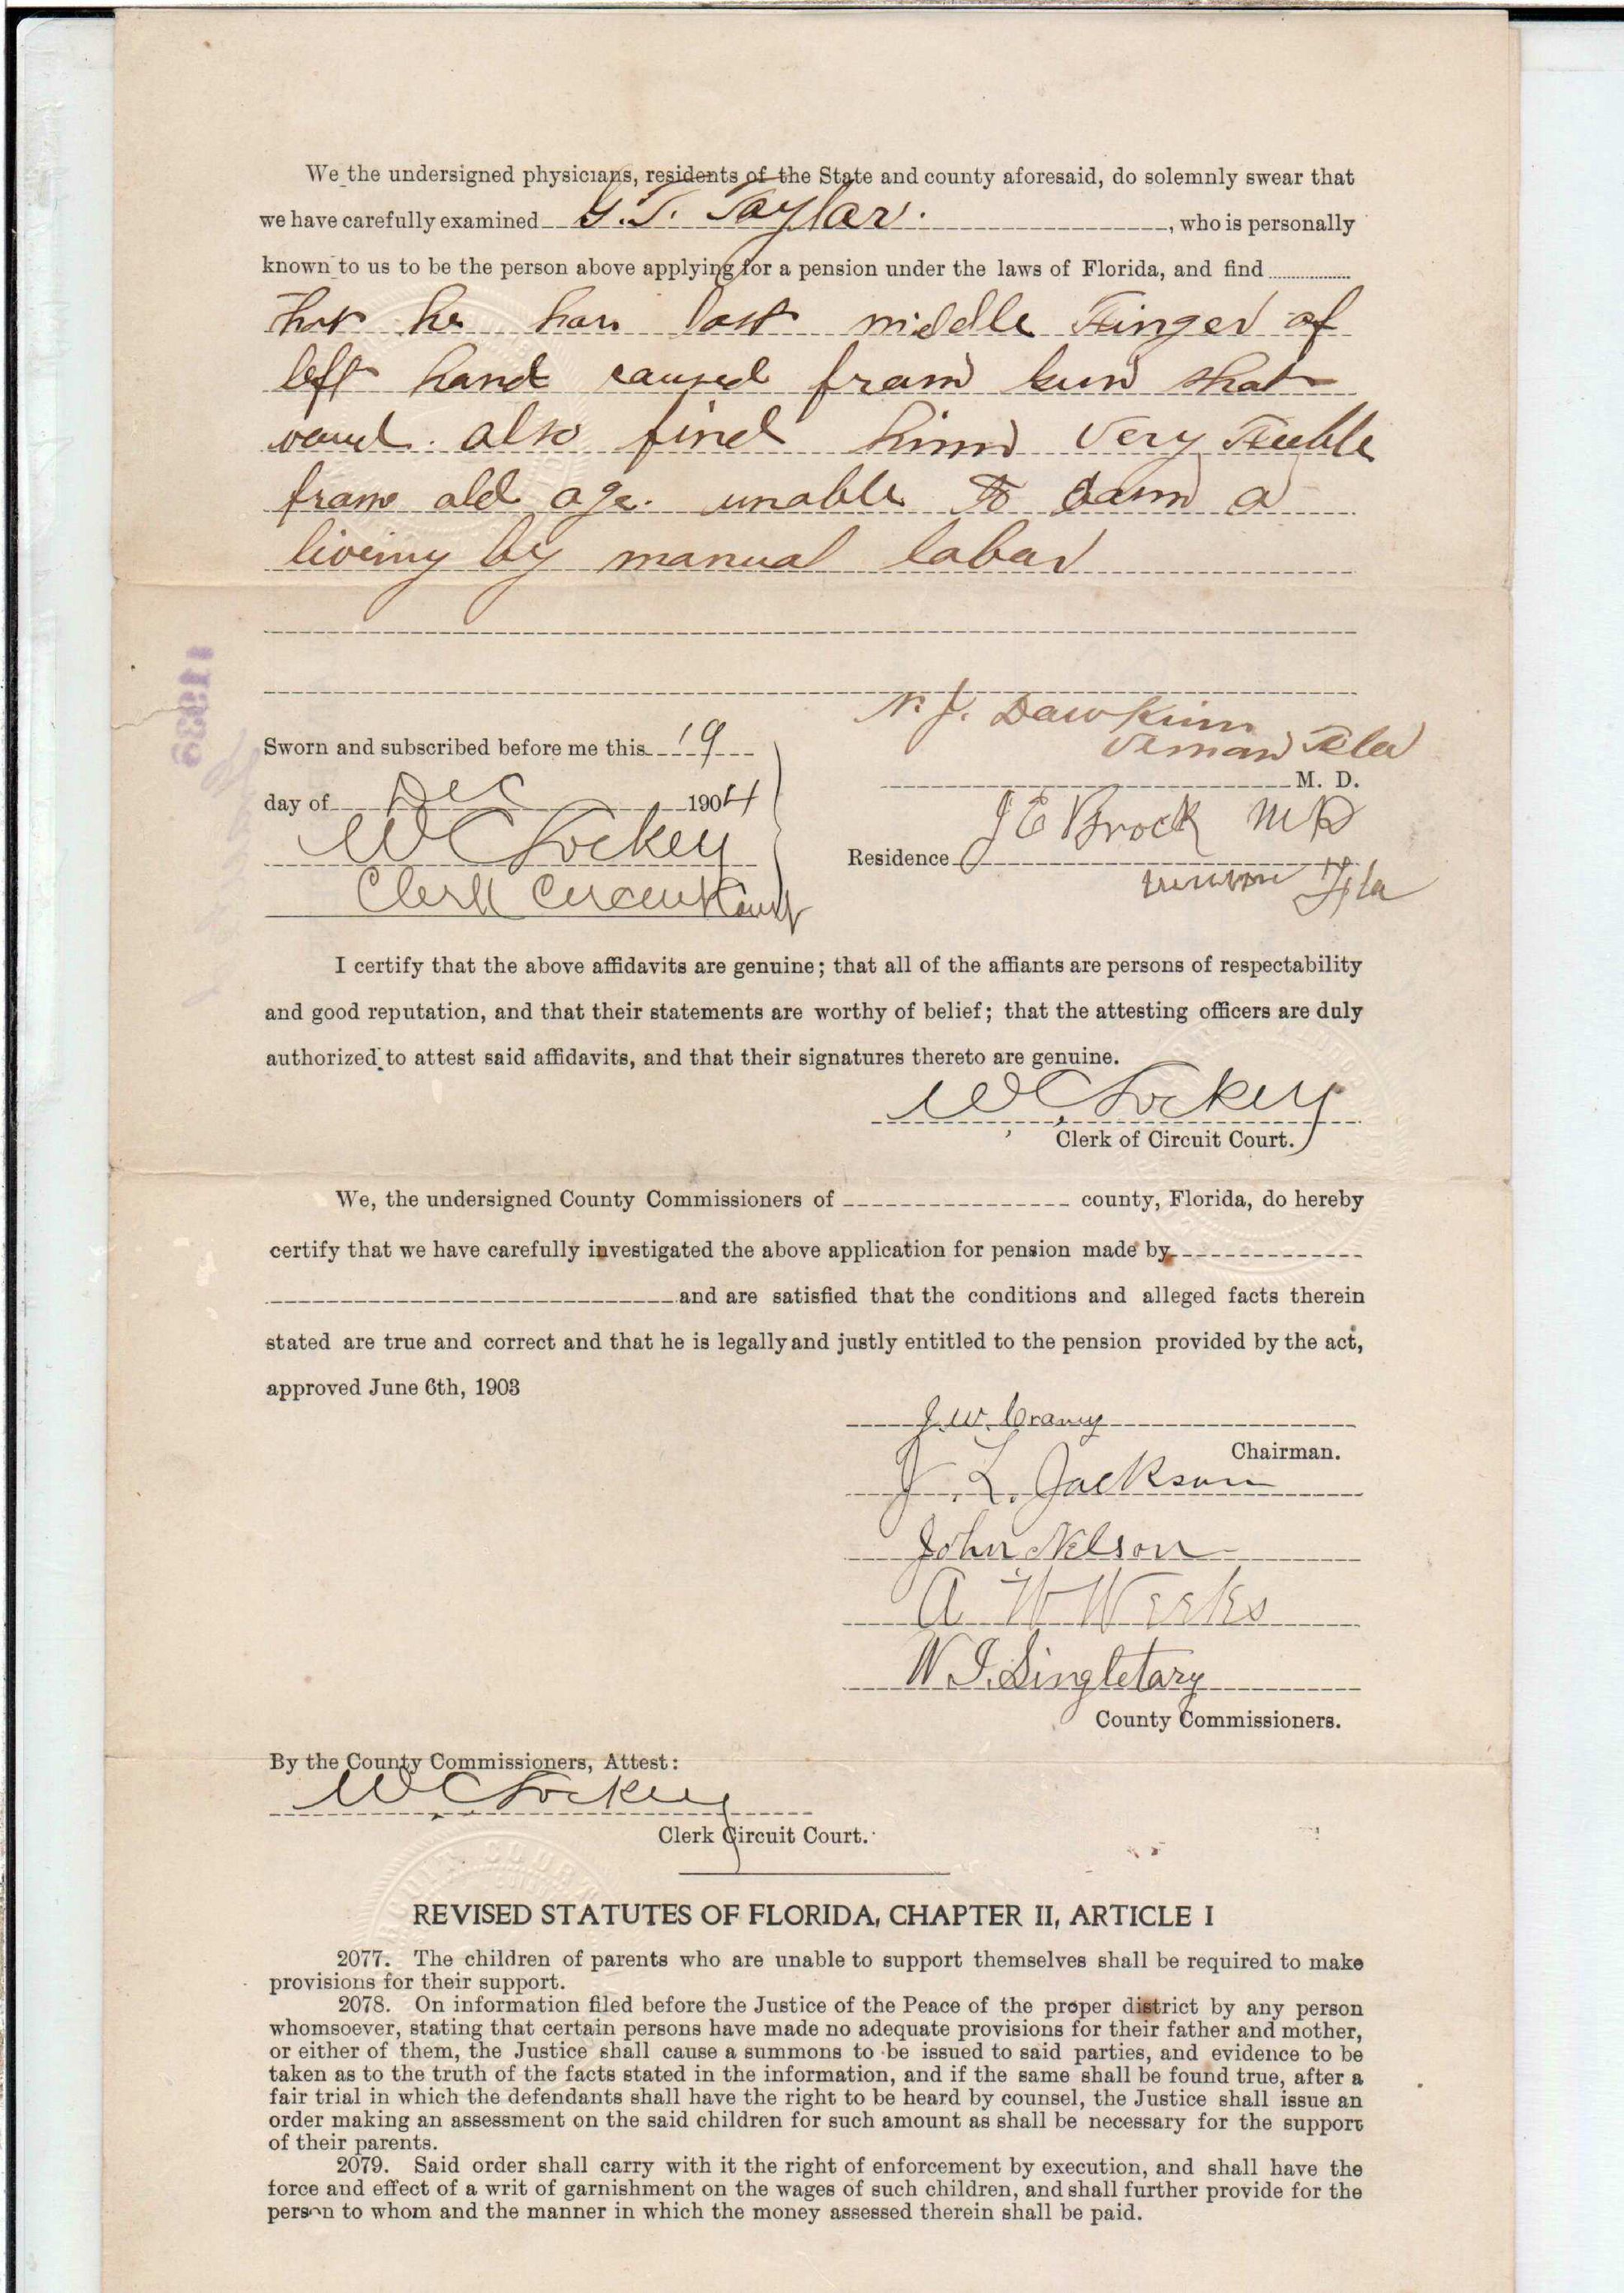 We the undersigned physicians, residents of the State and county aforesaid, do solemnly swear that
we have carefully examined G. T. Taylor. , who is personally
known to us to be the person above applying for a pension under the laws of Florida, and find
that he has lost middle Finger of
left hand caused from gun shot
wound. also find him very Feeble
from old age. unable to earn a
liveing by manual labor
Sworn and subscribed before me this 19
N. J. Dawkins
Vernon Fla
day of Dec 1904
M. D.
W C Lockey
J E Brock M D
Residence
Vernon Fla
Clerk Circuit Court
I certify that the above affidavits are genuine; that all of the affiants are persons of respectability
and good reputation, and that their statements are worthy of belief; that the attesting officers are duly
authorized to attest said affidavits, and that their signatures thereto are genuine.
W C Lockey
Clerk of Circuit Court.
We, the undersigned County Commissioners of county, Florida, do hereby
certify that we have carefully investigated the above application for pension made by
and are satisfied that the conditions and alleged facts therein
stated are true and correct and that he is legally and justly entitled to the pension provided by the act,
approved June 6th, 1903
J. W.
Chairman.
J. L. Jackson
John Nelson
A W Weeks
W. I. Singletary
County Commissioners.
By the County Commissioners, Attest:
W C Lockey
Clerk Circuit Court.
REVISED STATUTES OF FLORIDA, CHAPTER II, ARTICLE I
2077. The children of parents who are unable to support themselves shall be required to make
provisions for their support.
2078. On information filed before the Justice of the Peace of the proper district by any person
whomsoever, stating that certain persons have made no adequate provisions for their father and mother,
or either of them, the Justice shall cause a summons to be issued to said parties, and evidence to be
taken as to the truth of the facts stated in the information, and if the same shall be found true, after a
fair trial in which the defendants shall have the right to be heard by counsel, the Justice shall issue an
order making an assessment on the said children for such amount as shall be necessary for the support
of their parents.
2079. Said order shall carry with it the right of enforcement by execution, and shall have the
force and effect of a writ of garnishment on the wages of such children, and shall further provide for the
person to whom and the manner in which the money assessed therein shall be paid.